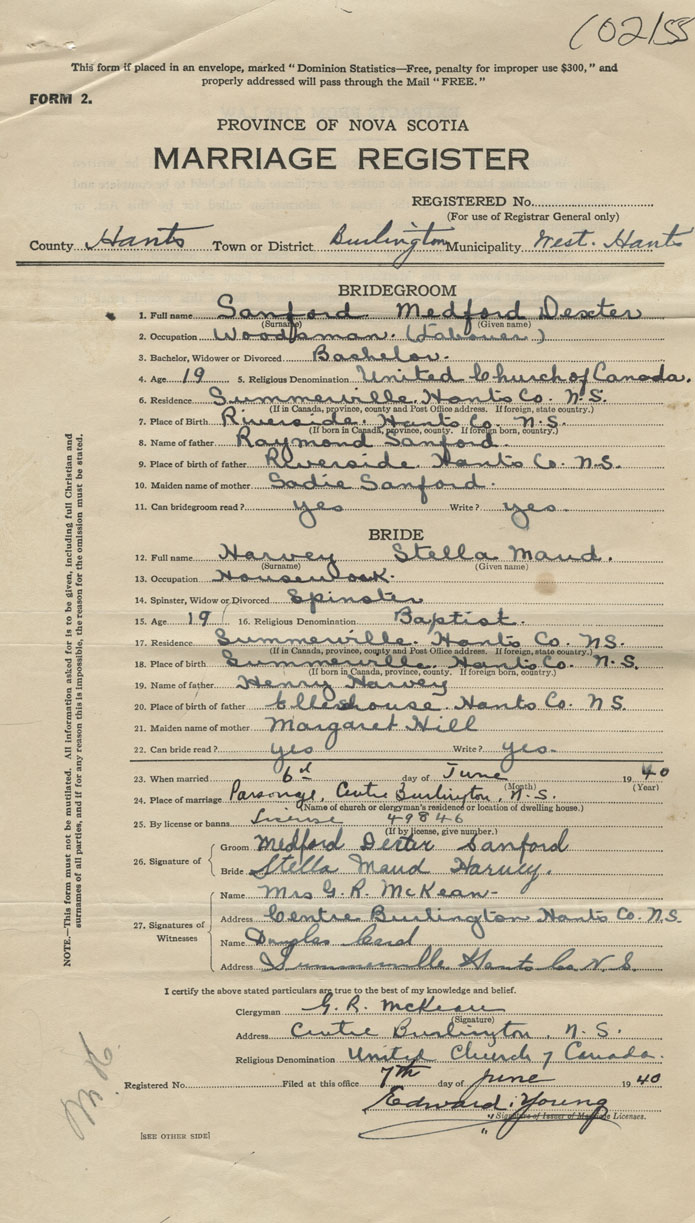 102155
This form if placed in an envelope, marked "Dominion Statistics—Free, penalty for improper use $300," and
properly addressed will pass through the Mail "FREE."
FORM 2.
PROVINCE OF NOVA SCOTIA
MARRIAGE REGISTER
REGISTERED No.
(For use of Registrar General only)
County Hants Town or District Burlington Municipality West. Hants
BRIDEGROOM
1. Full name Sanford Medford Dexter
(Surname) (Given name)
2. Occupation Woodsman. (Labourer)
3. Bachelor, Widower or Divorced Bachelor.
4. Age 19 5. Religious Denomination United Church of Canada.
6. Residence Summerville. Hants Co. N.S.
(If in Canada, province, county and Post Office address. If foreign, state country.)
7. Place of Birth Riverside. Hants Co. N.S.
(If born in Canada, province, county. If foreign born, country.)
8. Name of father Raymond Sanford.
9. Place of birth of father Riverside. Hants Co. N.S.
10. Maiden name of mother Sadie Sanford.
11. Can bridegroom read? yes Write? yes.
BRIDE
12. Full name Harvey Stella Maud.
(Surname) (Given name)
13. Occupation Housework.
14. Spinster, Widow or Divorced Spinster
15. Age 19 16. Religious Denomination Baptist.
17. Residence Summerville. Hants Co. N.S.
(If in Canada, province, county and Post Office address. If foreign, state country.)
18. Place of birth Summerville. Hants Co. N.S.
(If born in Canada, province, county. If foreign born, country.)
19. Name of father Henry Harvey
20. Place of birth of father Ellershouse. Hants Co. N S.
21. Maiden name of mother Margaret Hill
22. Can bride read? yes Write? yes.
23. When married 6th day of June 1940
(Month) (Year)
24. Place of marriage Parsonage, Centre Burlington, N.S.
(Name of church or clergyman's residence or location of dwelling house.)
25. By license or banns License 49846
(If by license, give number.)
26. Signature of Groom Medford Dexter Sanford
Bride Stella Maud Harvey.
27. Signatures of Witnesses Name Mrs G. R. McKean
Address Centre Burlington Hants Co. N.S.
Name Douglas Card
Address Summerville Hants Co N.S.
I certify the above stated particulars are true to the best of my knowledge and belief.
Clergyman G. R. McKean
(Signature)
Address Centre Burlington, N.S.
Religious Denomination United Church of Canada.
Registered No. Filed at this office 7th day of June 1940
Edward. Young
Signature of Issuer of Marriage Licenses.
[SEE OTHER SIDE]
NOTE.—This form must not be mutilated. All information asked for is to be given, including full Christian and
surnames of all parties, and if for any reason this is impossible, the reason for the omission must be stated.